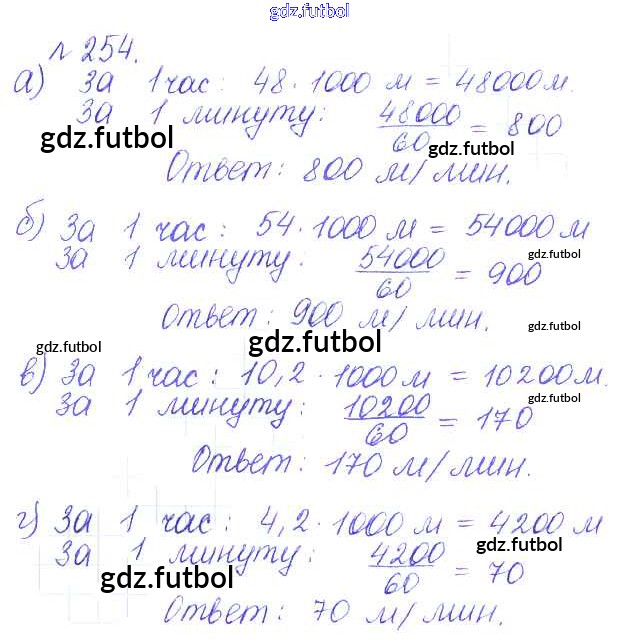 gdz.futbol
№ 254.
а) За 1 час: 48 · 1000 м = 48000 м.
За 1 минуту: 48000/60 = 800
gdz.futbol gdz.futbol
Ответ: 800 м/мин.
б) За 1 час: 54 · 1000 м = 54000 м
gdz.futbol
За 1 минуту: 54000/60 = 900
Ответ: 900 м/мин.
gdz.futbol
gdz.futbol gdz.futbol
в) За 1 час: 10,2 · 1000 м = 10200 м.
gdz.futbol
За 1 минуту: 10200/60 = 170
Ответ: 170 м/мин.
г) За 1 час: 4,2 · 1000 м = 4200 м
gdz.futbol
За 1 минуту: 4200/60 = 70
gdz.futbol
Ответ: 70 м/мин.